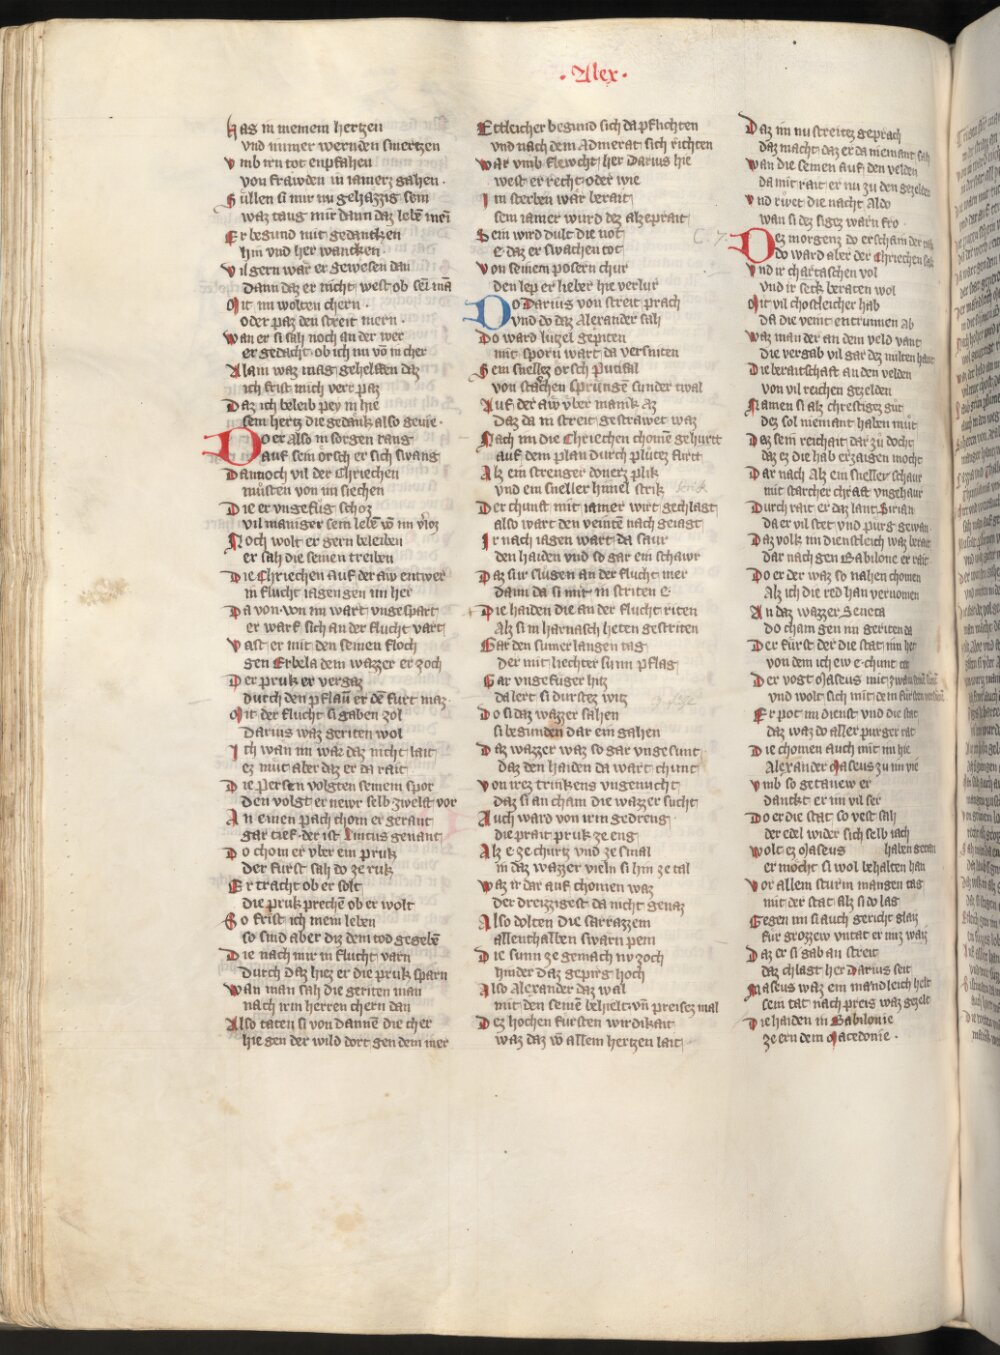 · Alex ·
has in meinem hertzen
vnd nimer wernden smertzen
vmb irn tot enpfahen
von frawden in iamerz gahen ·
Sullen si mir nu gehazzig sein
waz taug mir dann daz lebē mei
Er begund mit gedancken
hin vnd her wancken
vil gern war er gewesen dan
dann daz er nicht west ob sei mā
Mit im wolten chern ·
oder paz den streit mern ·
wan er si sah noch an der wer
er gedacht ob ich im vō in cher
Alain waz mag gehelffen daz
ich frist mich verr paz
Daz ich beleib pey in hie
sein hertz die gedank also geuie ·
Do er also in sorgen rang
auf sein orsch er sich swang
Dannoch vil der Chriechen
musten von im siechen
Die er vngefug schoz
vil maniger sein lebē vō im vloz
Noch wolt er gern beleiben
er sah die seinen treiben
Die Chriechen auf der aw entwer
in flucht iagen gen im her
Da von von im wart vngespart
er warf sich an der flucht vart
Vast er mit den seinen floch
gen Erbela dem wazzer er zoch
Der pruk er vergaz
durch den pflaū er dē furt maz
Mit der flucht si gaben zol
Darius waz geriten wol
Ich wan im war daz nicht lait
ez mut aber daz er da rait
Die persen volgten seinem spor
den volgt er newr selb zwelft vor
An einen pach chom er gerant
gar tief der ist Lincus genant
Do chom er vber ein pruk
der furst sah do ze ruk
Er tracht ob er solt
die pruk prechē ob er wolt
So frist ich mein leben
so sind aber diz dem tod gegebē
Die nach mir in flucht varn
durch daz hiez er die pruk sparn
wan man sah die geriten man
nach irm herren chern dan
Also taten si von dannē die cher
hie gen der wild dort gen dem mer
Ettleicher begund sich da pflichten
vnd nach dem Admerat sich richten
war vmb flewcht her Darius hie
west er recht oder wie
Im sterben war berait
sein iamer wurd dez alzeprait
Sein wird dult die not
e daz er swachen tot
von seinem posern chur
den lep er lieber hie verlur
Do Darius von streit prach
vnd do daz Alexander sah
Do ward lutzel gepiten
mit sporn wart da versniten
Sein snellez orsch Putifal
von starchen sprungē sunder twal
Auf der aw vber manik az
daz da in streit gestrawet waz
Nach im die Chriechen chomē gehurt
auf dem plan durch plutez furt
Alz ein strenger donerz plik
vnd ein sneller himel strik
Der chunst mit iamer wirt geclagt
also wart den veintē nach geiagt
Ir nach iagen wart da saur
den haiden vnd so gar ein schawr
Daz sur slugen an der flucht mer
dann da si mit in striten e
Die haiden die an der flucht riten
Alz si in harnasch heten gestriten
Gar den sumer langen tag
der mit liechter sunn pflag
Gar vngefuger hitz
da lert si durstez witz
Do si daz wazzer sahen
si begunden dar ein gahen
Daz wazzer waz so gar vngesunt
daz den haiden da wart chunt
von irez trinkens vngenucht
daz si an cham die wazzer sucht
Auch ward von irm gedreng
die prait pruk ze eng
Alz e ze churtz vnd ze smal
in daz wazzer vieln si hin ze tal
waz ir dar auf chomen waz
der dreizzigest da nicht genaz
Also dolten die sarrazzein
allenthalben swarn pein
Die sunn ze gemach nv zoch
hinder daz gepirg hoch
Also Alexander daz wal
mit den seinē behielt vn preisez mal
Dez hochen fursten wirdikait
waz daz vō allem hertzen lait
Daz im nu streitez geprach
daz macht daz er da niemant sah
wan die seinen auf den velden
da mit rait er nu zu den gezelden
vnd rwet die nacht Aldo
wan si dez sigez warn fro
Dez morgenz do erscham der tak
do ward aber der Chriechen sak
vnd ir chartaschen vol
vnd ir seck beraten wol
Mit vil chostleicher hab
da die veint entrunnen ab
waz man der an dem veld vant
die vergab vil gar dez milten hant
Die beraitschaft an den velden
von vil reichen gezelden
Namen si alz chrestigez gut
dez sol niemant haben mut
Daz sein reichait dar zu docht
daz ez die hab erzaigen mocht
Dar nach Alz ein sneller schaur
mit starcher chraft vngehaur
Durch rait er daz lant Sirian
da er vil stet vnd purg gewan
Daz volk im dienstleich waz berait
dar nach gen Babilone er rait
Do er der waz so nahen chomen
Alz ich die red han vernomen
An daz wazzer Seneca
do cham gen im geriten da
Der furst der die stat inn het
von dem ich ew e chunt tet
Der vogt Maseus mit zwain
vnd wolt sich mit dem fursten
Er pot im dienst vnd die stat
daz waz do aller purger rat
Die chomen auch mit im hie
Alexander Maseus zu im vie
vmb so getanew er
danckt er im vil ser
Do er die stat so vest sah
der edel wider sich selb iach
wolt ez Maseus haben getan
er mocht si wol behalten han
vor allem sturm mangen tag
mit der stat alz si do lag
Gegen im si auch gericht glaz
fur grozzew vntat er miz waz
Daz er si gab an streit
daz chlagt her Darius seit
Maseus waz ein mandleich helt
sein tat nach preis waz gezelt
Die haiden in Babilonie
ze ern dem Macedonie ·